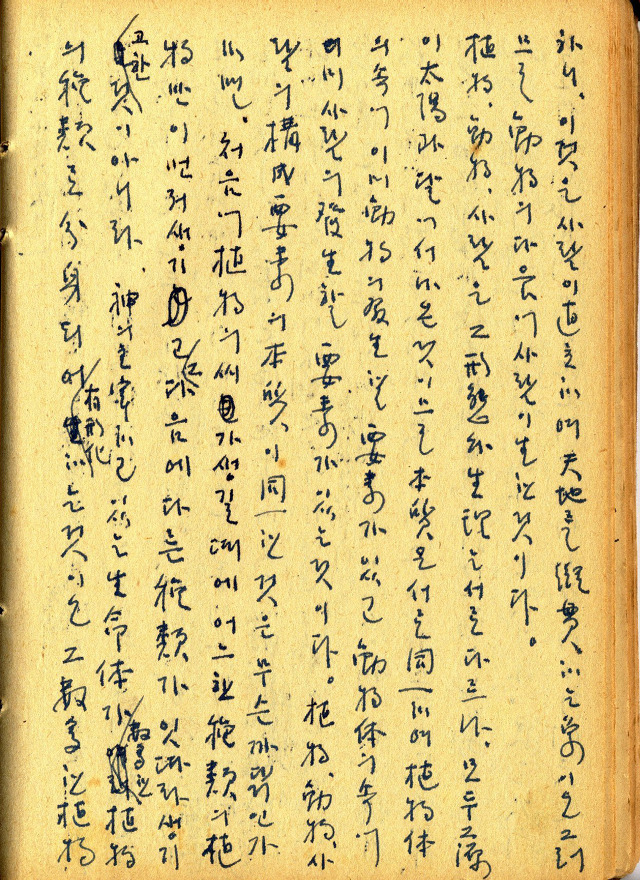 하니, 이것은 사람이 直立하여 天地를 縱貫하는 象이오 그러
므로 動物의 다음에 사람이 生한 것이다。
植物, 動物, 사람은 그 形態와 生理는 서로 다르나, 모두 그 源
이 太陽과 달에서 나온 것이므로 本質은 서로 同一하여 植物体
의 속에 이미 動物의 發生할 要素가 있고 動物体의 속에
이미 사람의 發生할 要素가 있는 것이다。 植物, 動物, 사
람의 構成要素의 本質이 同一한 것은 무슨 까닭인가
하면, 처음에 植物의 씨가 생길 때에 어느 한 種類의 植
物만이 먼저 생기고 그 다음에 다른 種類가 잇따라 생기
고 한 것이 아니라, 神의 主宰하고 있는 生命体가 數多한 植物
의 種類로 分身되어 有形化하는 것이오 그 數多한 植物